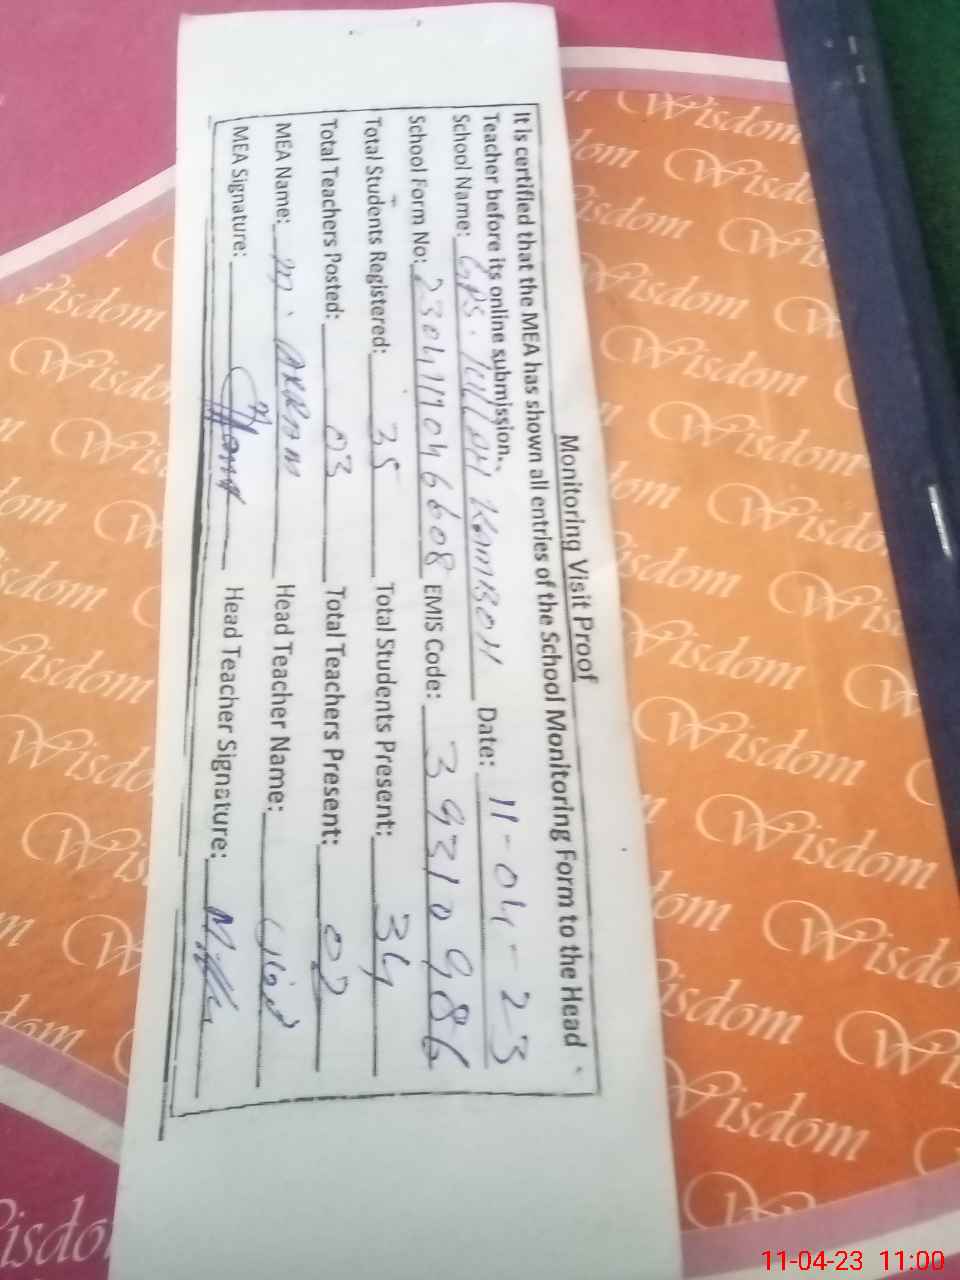 Monitoring Visit Proof
It is certified that the MEA has shown all entries of the School Monitoring Form to the Head
Teacher before its online submission.
School Name: GPS. Kamboh Date: 11-04-23
School Form No: 2304117046608 EMIS Code: 39310986
Total Students Registered: 35 Total Students Present: 34
Total Teachers Posted: 03 Total Teachers Present: 02
MEA Name: M. AKRAM Head Teacher Name:
MEA Signature: Head Teacher Signature:
Wisdom
11-04-23 11:00